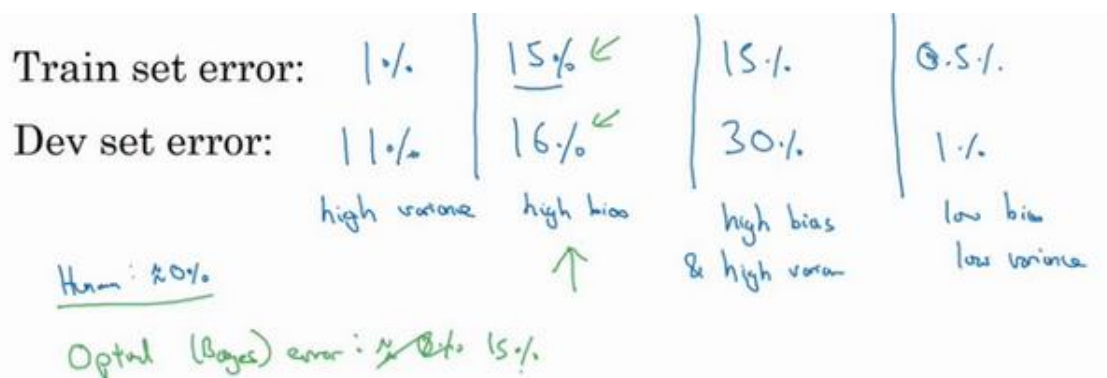 Train set error: 1% 15% 15% 0.5%
Dev set error: 11% 16% 30% 1%
high variance high bias high bias low bias
& high varian low variance
Human: ≈0%
Optial (Bayes) error: ≈0% 15%